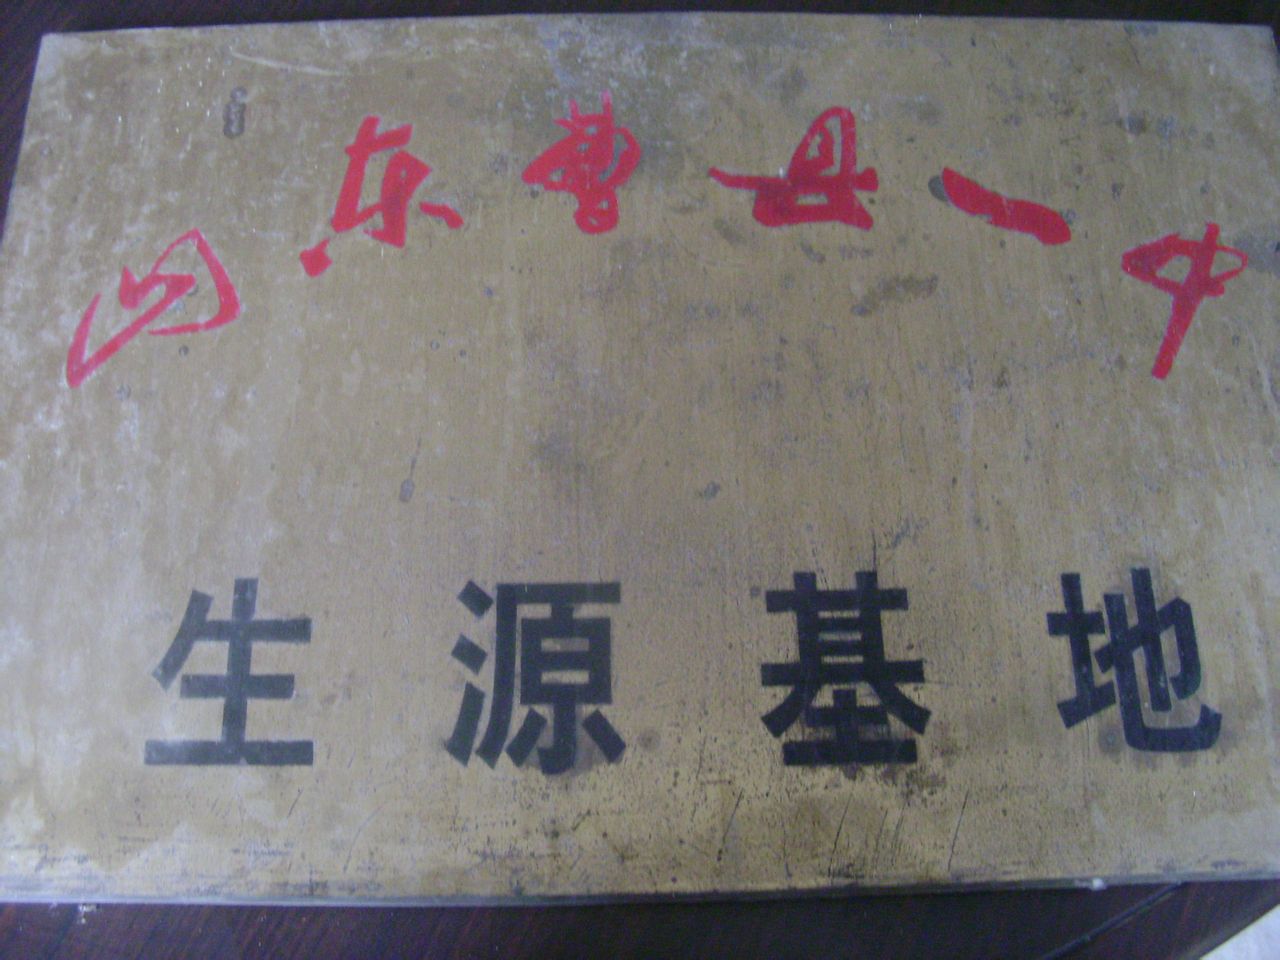 山东曹县一中
生源基地